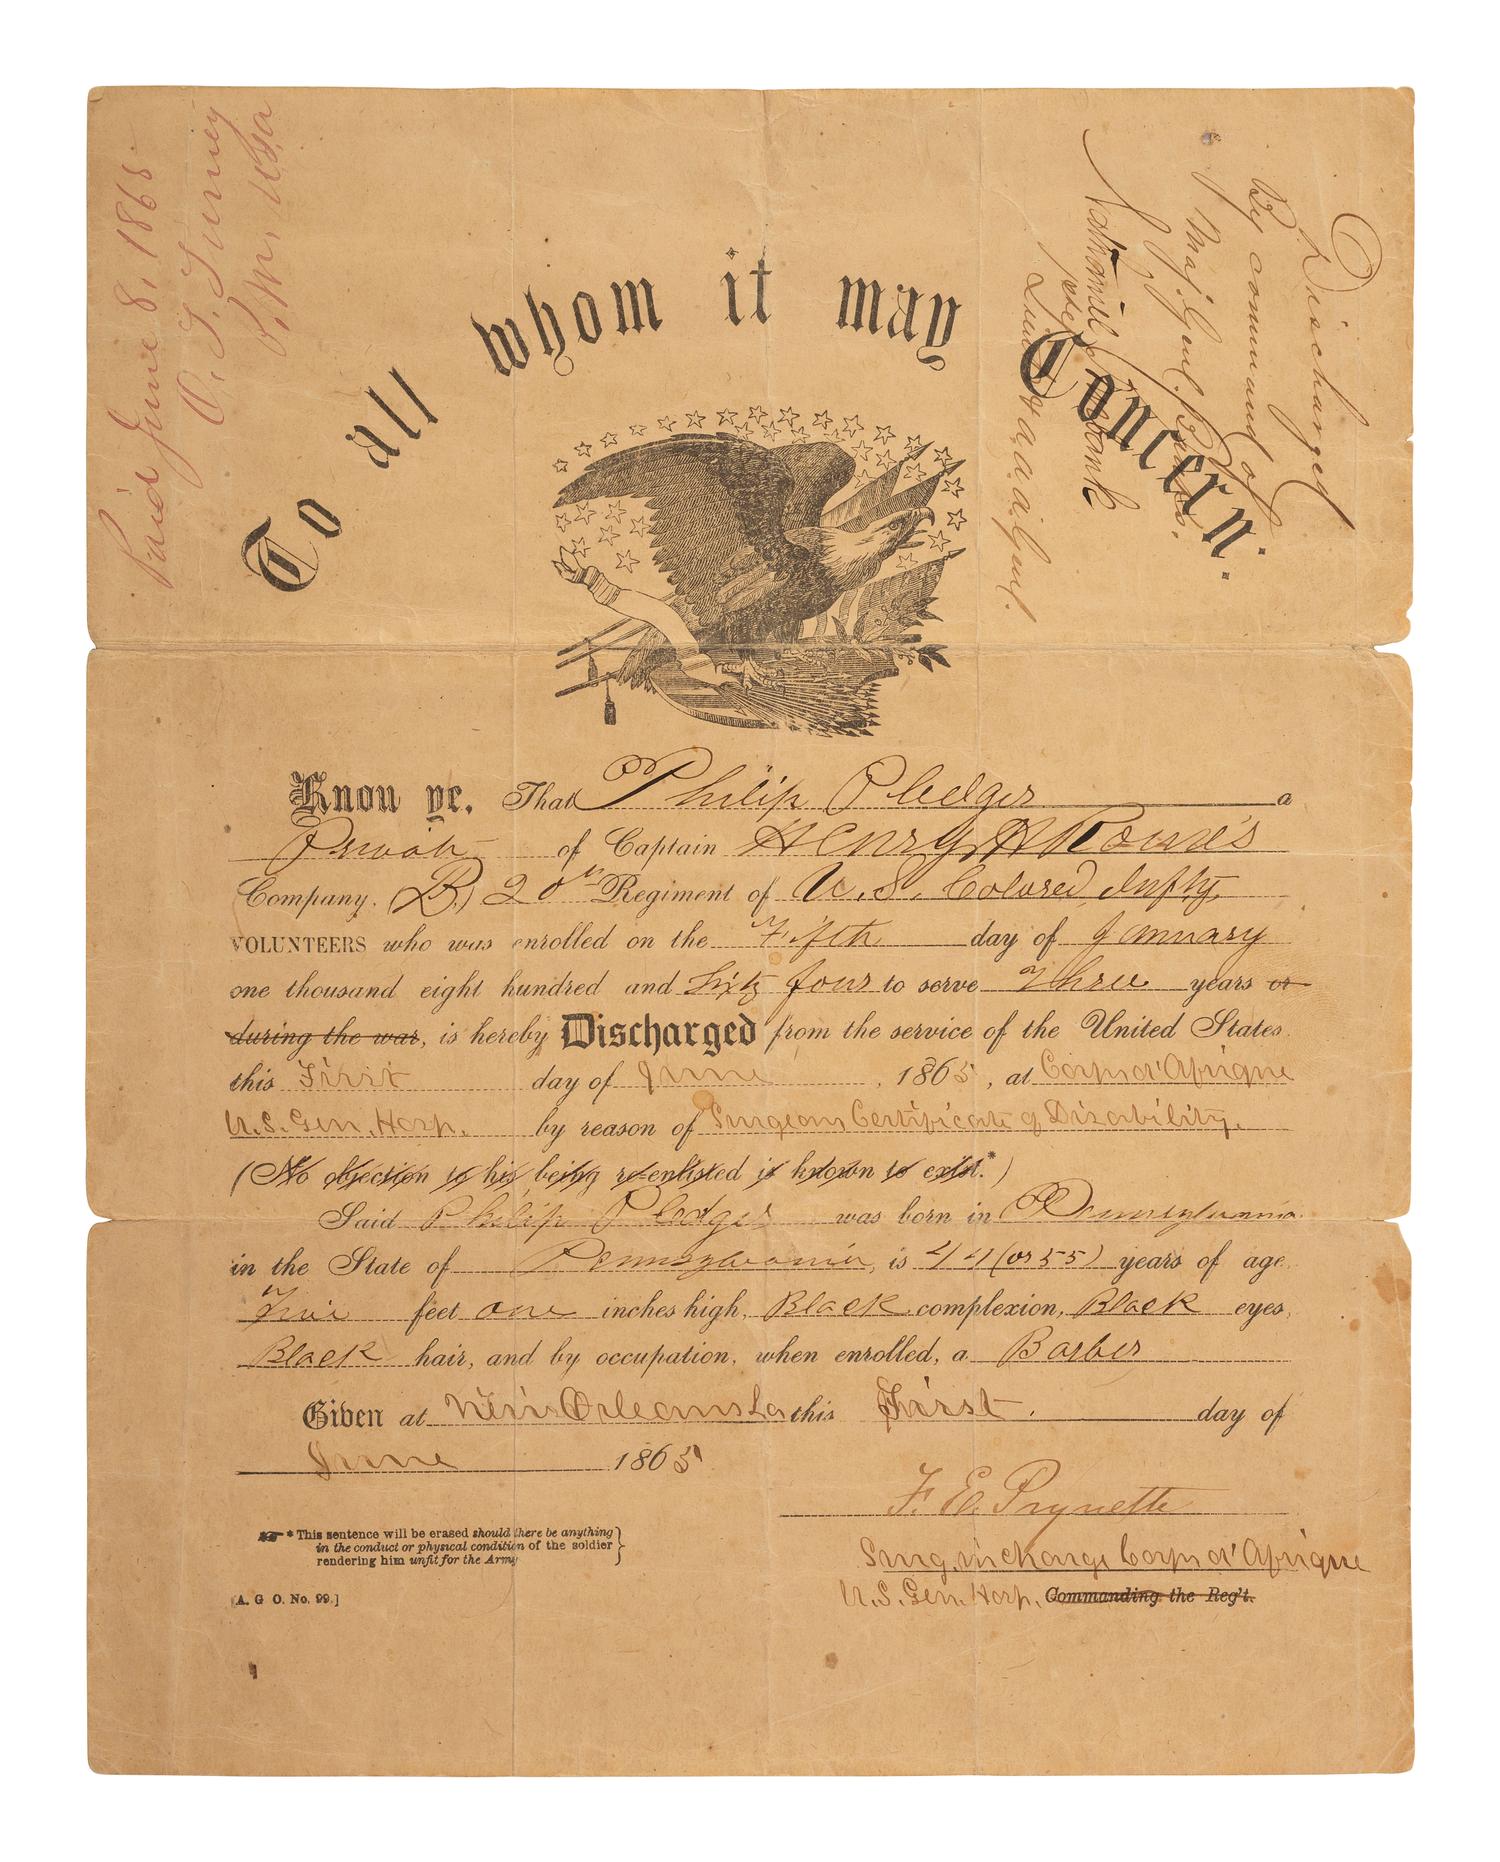 Paid June 8, 1865
To all whom it may Concern.
Discharged
By command of
Maj. Genl. Banks,
Nathaniel Burbank
Lieut & a.a.a. Genl.
Know ye. That Philip Pledger a
Private of Captain Henry A Rowe's
Company. (B,) 20th Regiment of U. S. Colored Infty,
VOLUNTEERS who was enrolled on the Fifth day of January
one thousand eight hundred and Sixty four to serve Three years or
during the war, is hereby Discharged from the service of the United States
this First day of June, 1865, at Corps d'Afrique
U.S. Gen. Hosp. by reason of Surgeons Certificate of Disability.
(No objection to his being re-enlisted is known to exist.*)
Said Philip Pledger was born in Pennsylvania
in the State of Pennsylvania, is 44 (or 55) years of age
Five feet one inches high, Black complexion, Black eyes,
Black hair, and by occupation, when enrolled, a Barber
Given at New Orleans La this First day of
June 1865
Surg. in charge Corps d'Afrique
U.S. Gen. Hosp. Commanding the Reg't.
* This sentence will be erased should there be anything
in the conduct or physical condition of the soldier
rendering him unfit for the Army
[A. G O. No. 99.]